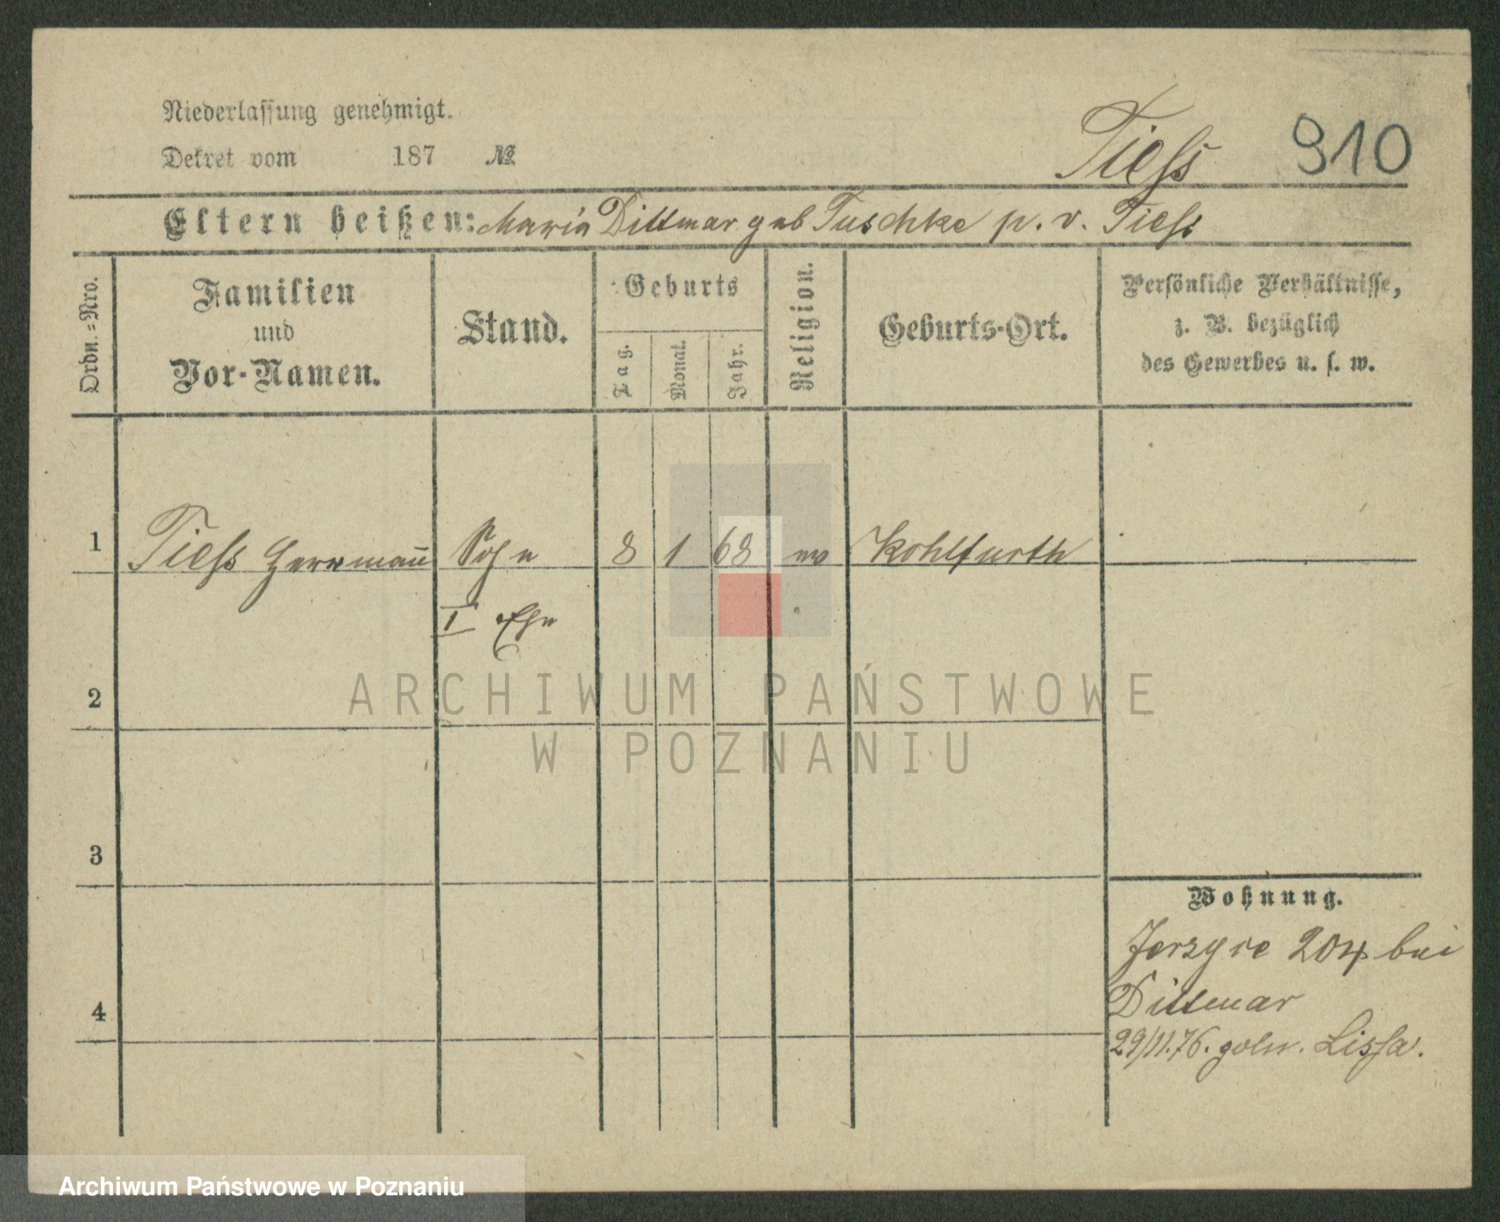 Niederlassung genehmigt.
Dekret vom 187 №
Tiess 910
Eltern heißen: Maria Dittmar geb Tuschke p. v. Tiess
Ordn.=Nro.
Familien
und
Vor-Namen.
Stand.
Geburts
Tag.
Monat.
Jahr.
Religion.
Geburts-Ort.
Persönliche Verhältnisse,
z. B. bezüglich
des Gewerbes u. s. w.
1 Tiess Herrmann Sohn 8 1 68 ev Kohlfurth
I Ehe
ARCHIWUM PAŃSTWOWE
W POZNANIU
2
3
4
Wohnung.
Jerzyce 204 bei
Dittmar
29/11.76. Lissa.
Archiwum Państwowe w Poznaniu